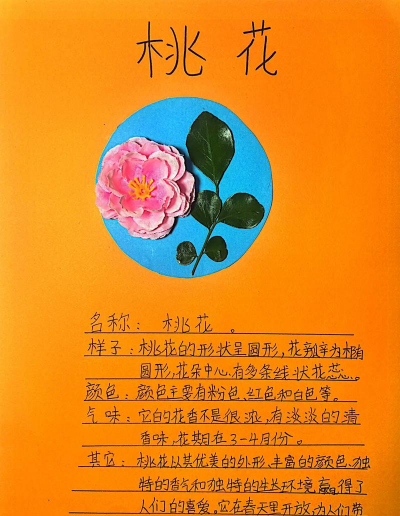 桃 花
名称: 桃花 。
样子:桃花的形状呈圆形,花瓣亲为椭
圆形,花朵中心,有多条线状花蕊。
颜色:颜色主要有粉色、红色和白色等。
气味:它的花香不是很浓,有淡淡的清
香味,花期在3-4月份。
其它:桃花以其优美的外形、丰富的颜色、独
特的香气和独特的生长环境赢得了
人们的喜爱。它在春天里开放,为人们带